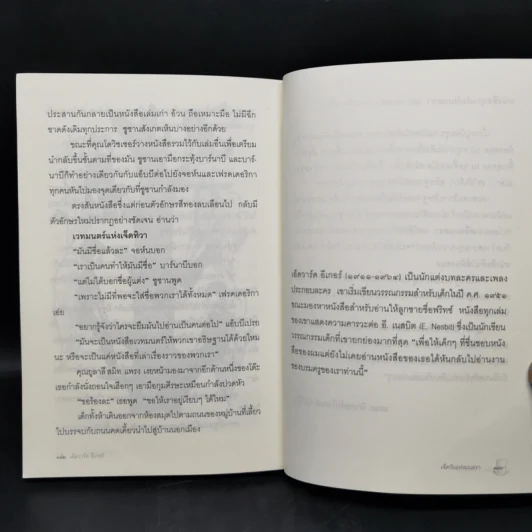 ประสานกันกลายเป็นหนังสือเล่มเก่า อ้วน ถือเหมาะมือ ไม่มีฉีก
ขาดดังเดิมทุกประการ ซูซานสังเกตเห็นบางอย่างอีกด้วย
ขณะที่คุณโดวิซเซอร์วางหนังสือรวมไว้กับเล่มอื่นเพื่อเตรียม
นำกลับขึ้นชั้นตามที่ของมัน ซูซานเอามือกระทุ้งบาร์นาบี และบาร์-
นาบีก็ทำอย่างเดียวกันกับแอ๊บบีต่อไปยังจอห์นและเฟรดเดอริกา
ทุกคนหันไปมองจุดเดียวกับที่ซูซานกำลังมอง
ตรงสันหนังสือซึ่งแต่ก่อนตัวอักษรสีทองลบเลือนไป กลับมี
ตัวอักษรใหม่ปรากฏอย่างชัดเจน อ่านว่า
เวทมนตร์แห่งเจ็ดทิวา
“มันมีชื่อแล้วละ” จอห์นบอก
“เราเป็นคนทำให้มันมีชื่อ” บาร์นาบีบอก
“แต่ไม่ได้บอกชื่อผู้แต่ง” ซูซานพูด
“เพราะไม่มีที่พอจะใส่ชื่อพวกเราได้ทั้งหมด” เฟรดเดอริกา
เอ่ย
“อยากรู้จังว่าใครจะยืมมันไปอ่านเป็นคนต่อไป” แอ๊บบีเปรย
“มันจะเป็นหนังสือเวทมนตร์ให้พวกเขาอธิษฐานได้ด้วยไหม
นะ หรือจะเป็นแค่หนังสือที่เล่าเรื่องราวของพวกเรา”
คุณยูลาลี สมิท แพรง เงยหน้ามองมาจากอีกด้านหนึ่งของโต๊ะ
เธอกำลังนั่งถอนใจเฮือกๆ เอามือกุมศีรษะเหมือนกำลังปวดหัว
“ขอร้องละ” เธอพูด “ขอให้เราอยู่เงียบๆ ได้ไหม”
เด็กทั้งห้าเดินออกจากห้องสมุดไปตามถนนของหมู่บ้านที่เลี้ยว
ไปบรรจบกับถนนคดเคี้ยวนำไปสู่บ้านนอกเมือง
เอ็ดวาร์ด อีเกอร์
เอ็ดวาร์ด อีเกอร์ (๑๙๑๑-๑๙๖๔) เป็นนักแต่งบทละครและเพลง
ประกอบละคร เขาเริ่มเขียนวรรณกรรมสำหรับเด็กในปี ค.ศ. ๑๙๕๑
ขณะมองหาหนังสือสำหรับอ่านให้ลูกชายชื่อฟริทซ์ หนังสือทุกเล่ม
ของเขาแสดงความคารวะต่อ อี. เนสบิต (E. Nesbit) ซึ่งเป็นนักเขียน
วรรณกรรมเด็กที่เขายกย่องมากที่สุด “เพื่อให้เด็กๆ ที่ชื่นชอบหนัง
สือของผมแต่ยังไม่เคยอ่านหนังสือของเธอได้หันกลับไปอ่านงาน
ของบรมครูของเราท่านนี้”